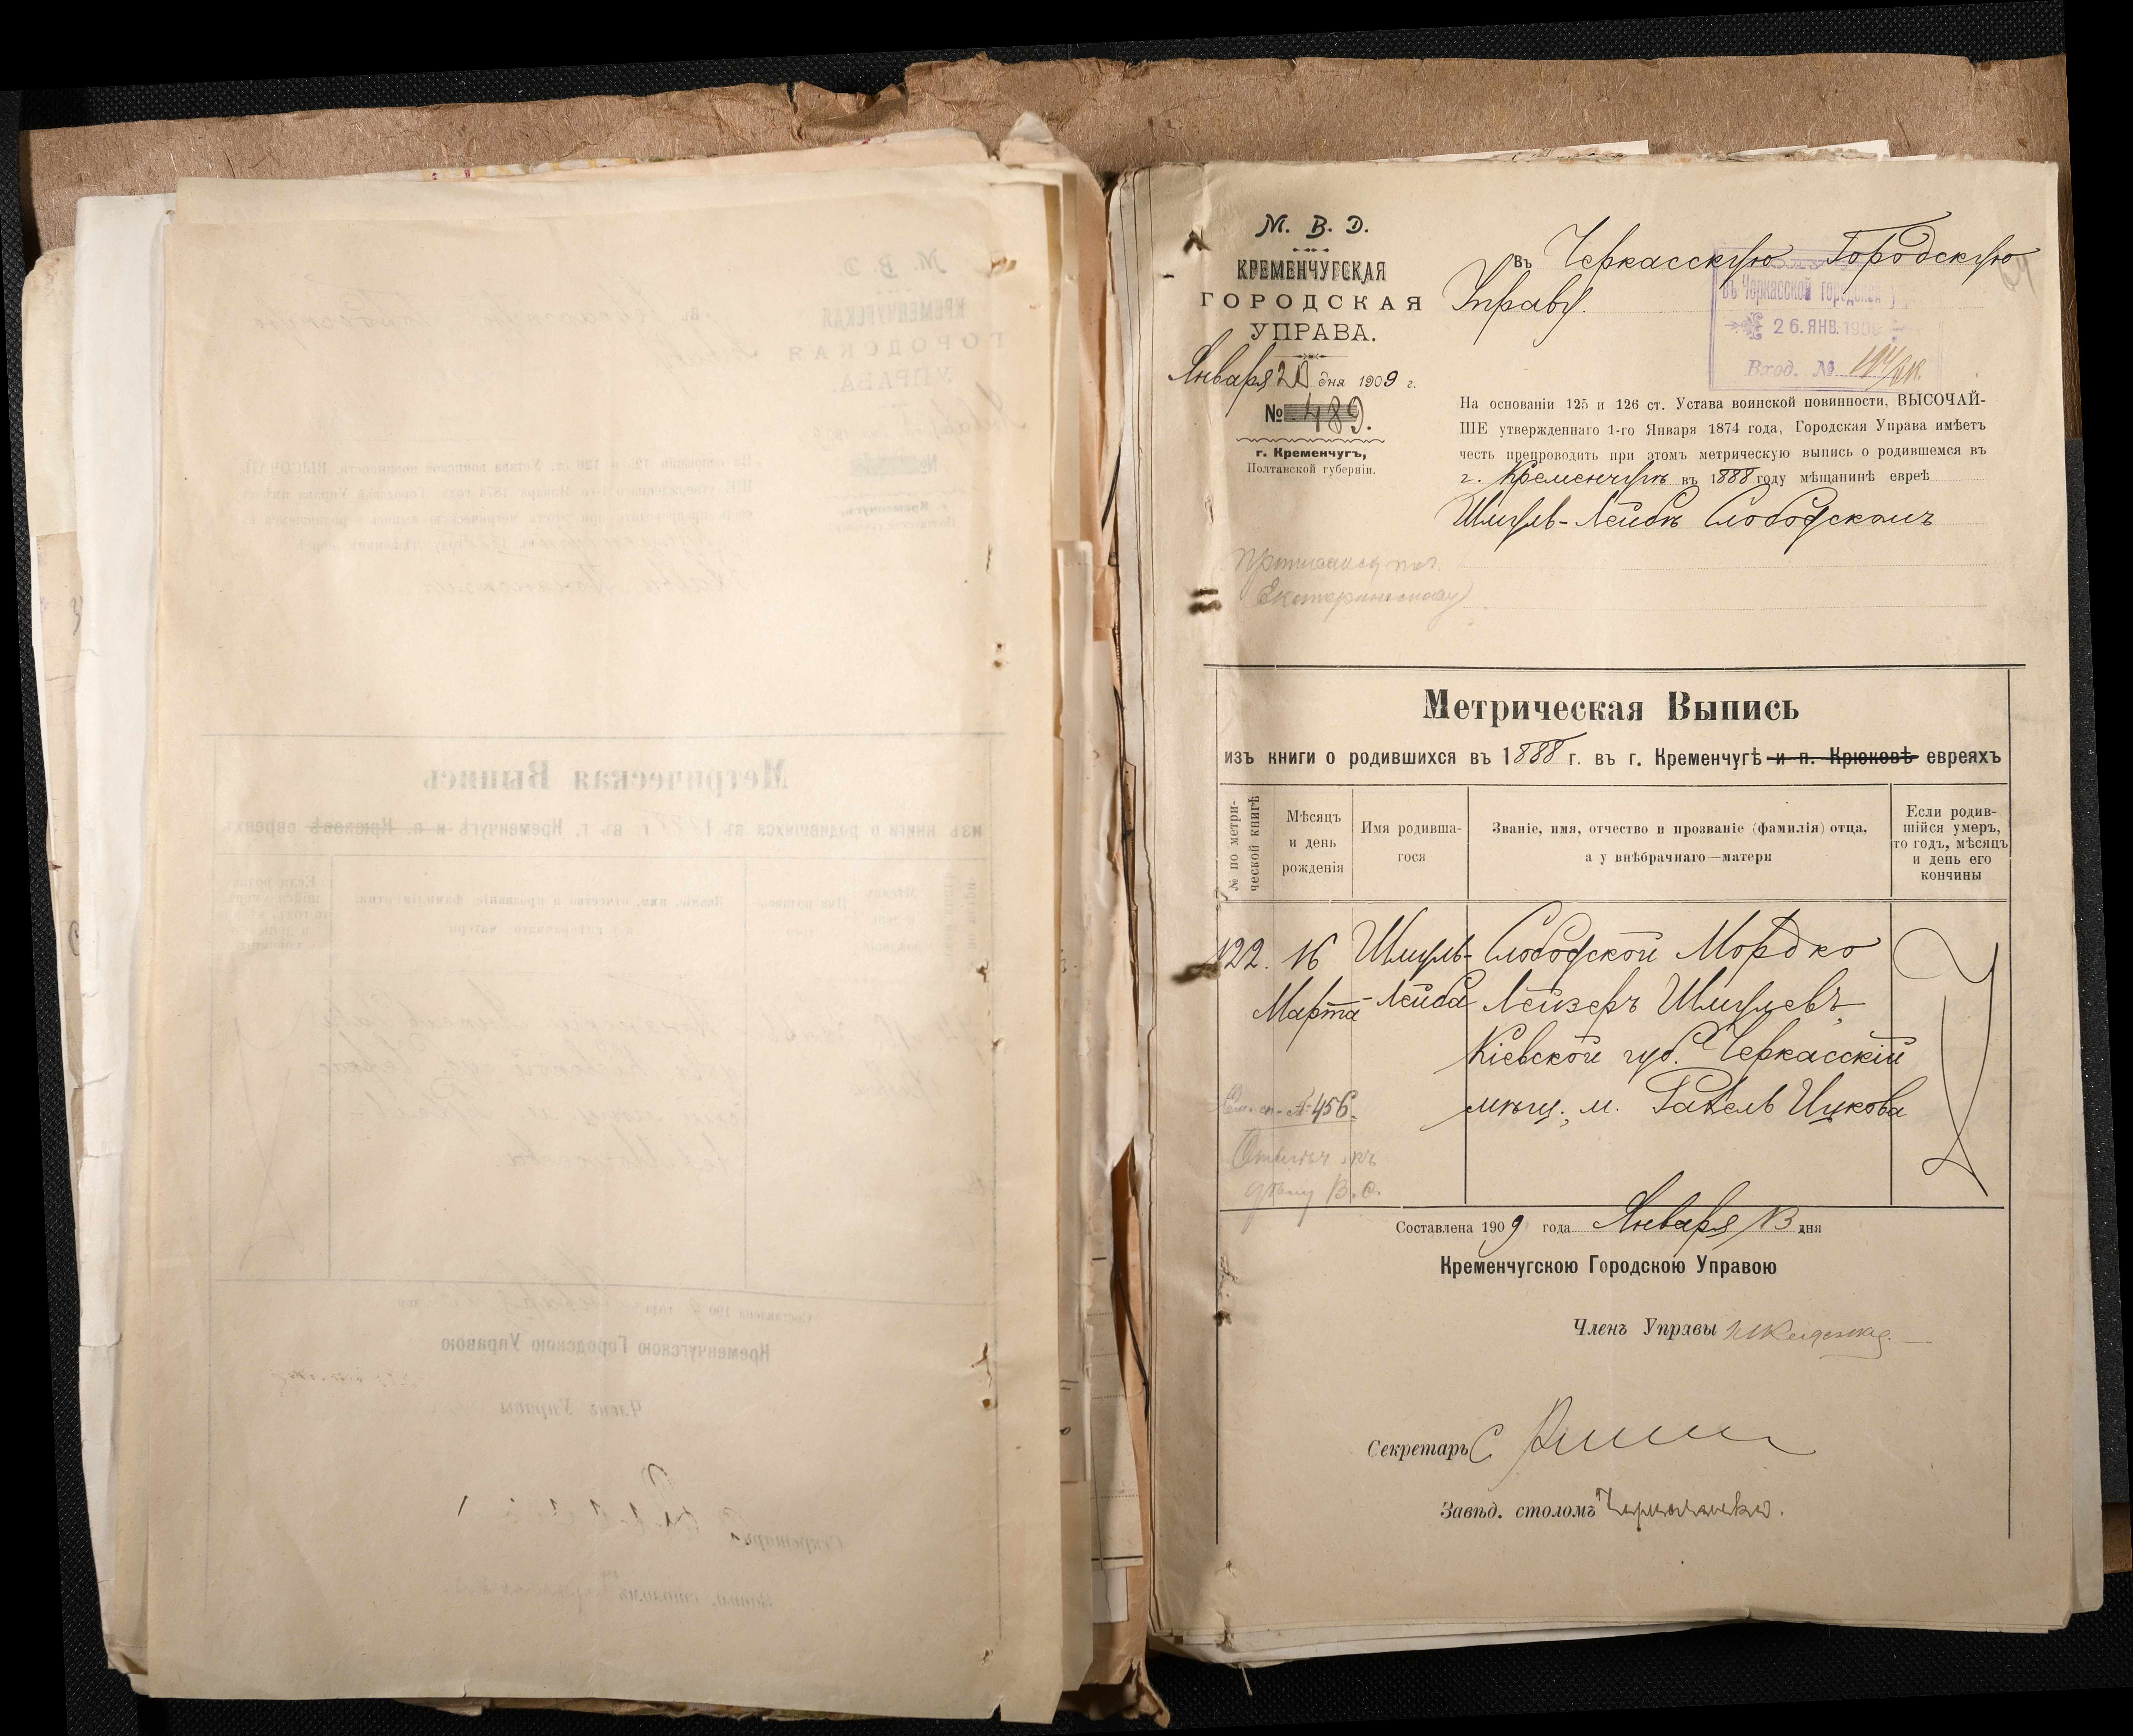 М. В. Д.
КРЕМЕНЧУГСКАЯ
ГОРОДСКАЯ
УПРАВА.
Января 20 дня 1909 г.
№ 489.
г. Кременчугъ,
Полтавской губерніи.
въ Черкасскую Городскую
Управу.
въ Черкасской городской
26. ЯНВ. 1909
Вход. №
На основаніи 125 и 126 ст. Устава воинской повинности, ВЫСОЧАЙ-
ШЕ утвержденнаго 1-го Января 1874 года, Городская Управа имѣетъ
честь препроводить при этомъ метрическую выпись о родившемся въ
г. Кременчугѣ въ 1888 году мѣщанинѣ евреѣ
Шмуль-Лейбѣ Слободскомъ
Метрическая Выпись
изъ книги о родившихся въ 1888 г. въ г. Кременчугѣ и п. Крюковѣ евреяхъ
№ по метри-
ческой книгѣ
Мѣсяцъ
и день
рожденія
Имя родивша-
гося
Званіе, имя, отчество и прозваніе (фамилія) отца,
а у внѣбрачнаго—матери
Если родив-
шійся умеръ,
то годъ, мѣсяцъ
и день его
кончины
122. 16 Шмуль- Слободской Мордко
Марта -Лейба Лейзеръ Шмулевъ,
Кіевской губ. Черкасскій
мѣщ., м. Рахель Ицкова
№ 456.
Составлена 1909 года Января 13 дня
Кременчугскою Городскою Управою
Членъ Управы
Секретарь
Завѣд. столомъ